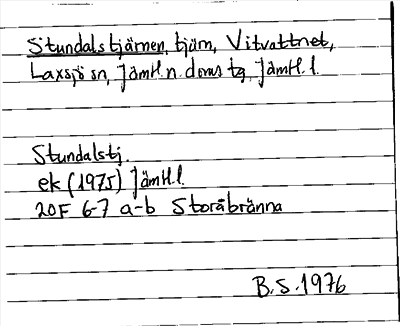 Stundalstjärnen, tjärn, Vitvattnet,
Laxsjö sn, Jämtl. n. doms tg, Jämtl. l.
Stundalstj.
ek (1975) Jämtl. l.
20F 6-7 a-b Storåbränna
B.S. 1976